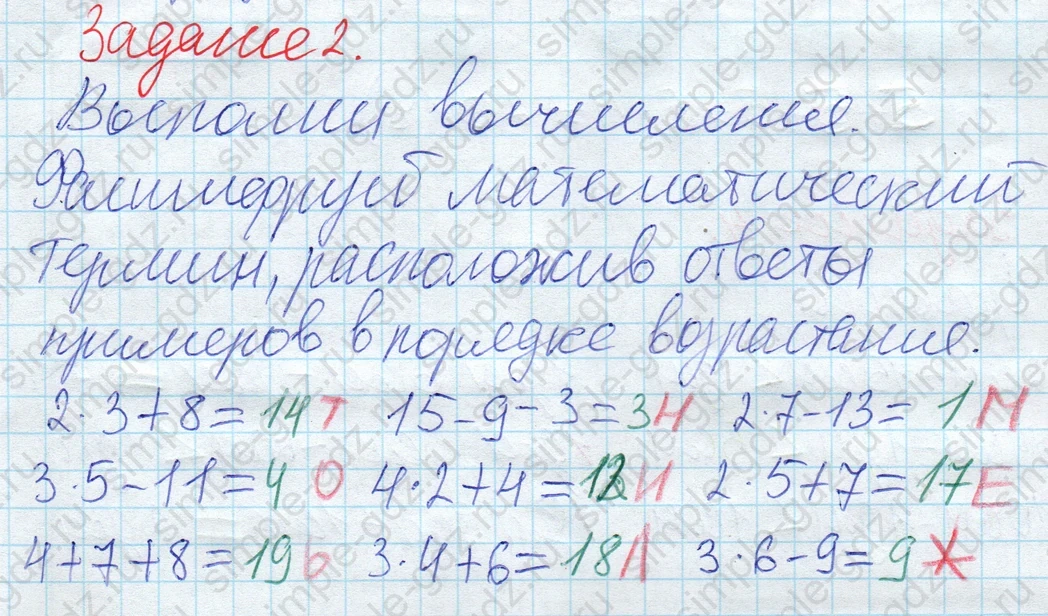 Задание 2.
Выполни вычисления.
Расшифруй математический
термин, расположив ответы
примеров в порядке возрастания.
2·3+8=14Т 15-9-3=3Н 2·7-13=1М
3·5-11=4О 4·2+4=12И 2·5+7=17Е
4+7+8=19Ь 3·4+6=18Л 3·6-9=9Ж